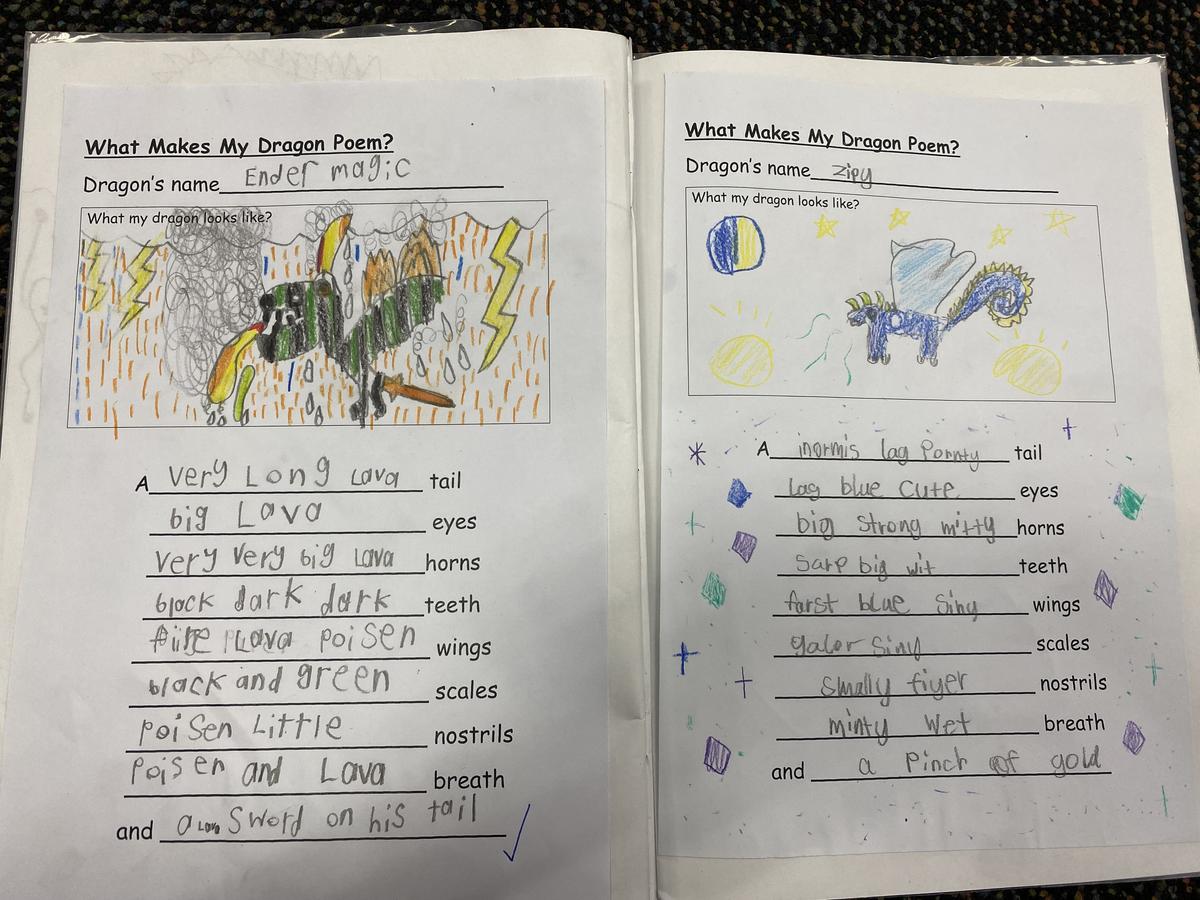 What Makes My Dragon Poem?
Dragon's name Ender magic
What my dragon looks like?
A very Long Lava tail
big Lava eyes
very very big Lava horns
black dark dark teeth
Lava poisen wings
black and green scales
poisen Little nostrils
poisen and Lava breath
and a Lava sword on his tail
What Makes My Dragon Poem?
Dragon's name zipy
What my dragon looks like?
A inormis lag Pornty tail
lag blue cute eyes
big strong mitty horns
sarp big wit teeth
farst blue Siny wings
galor Siny scales
smally fiyer nostrils
minty wet breath
and a Pinch of gold